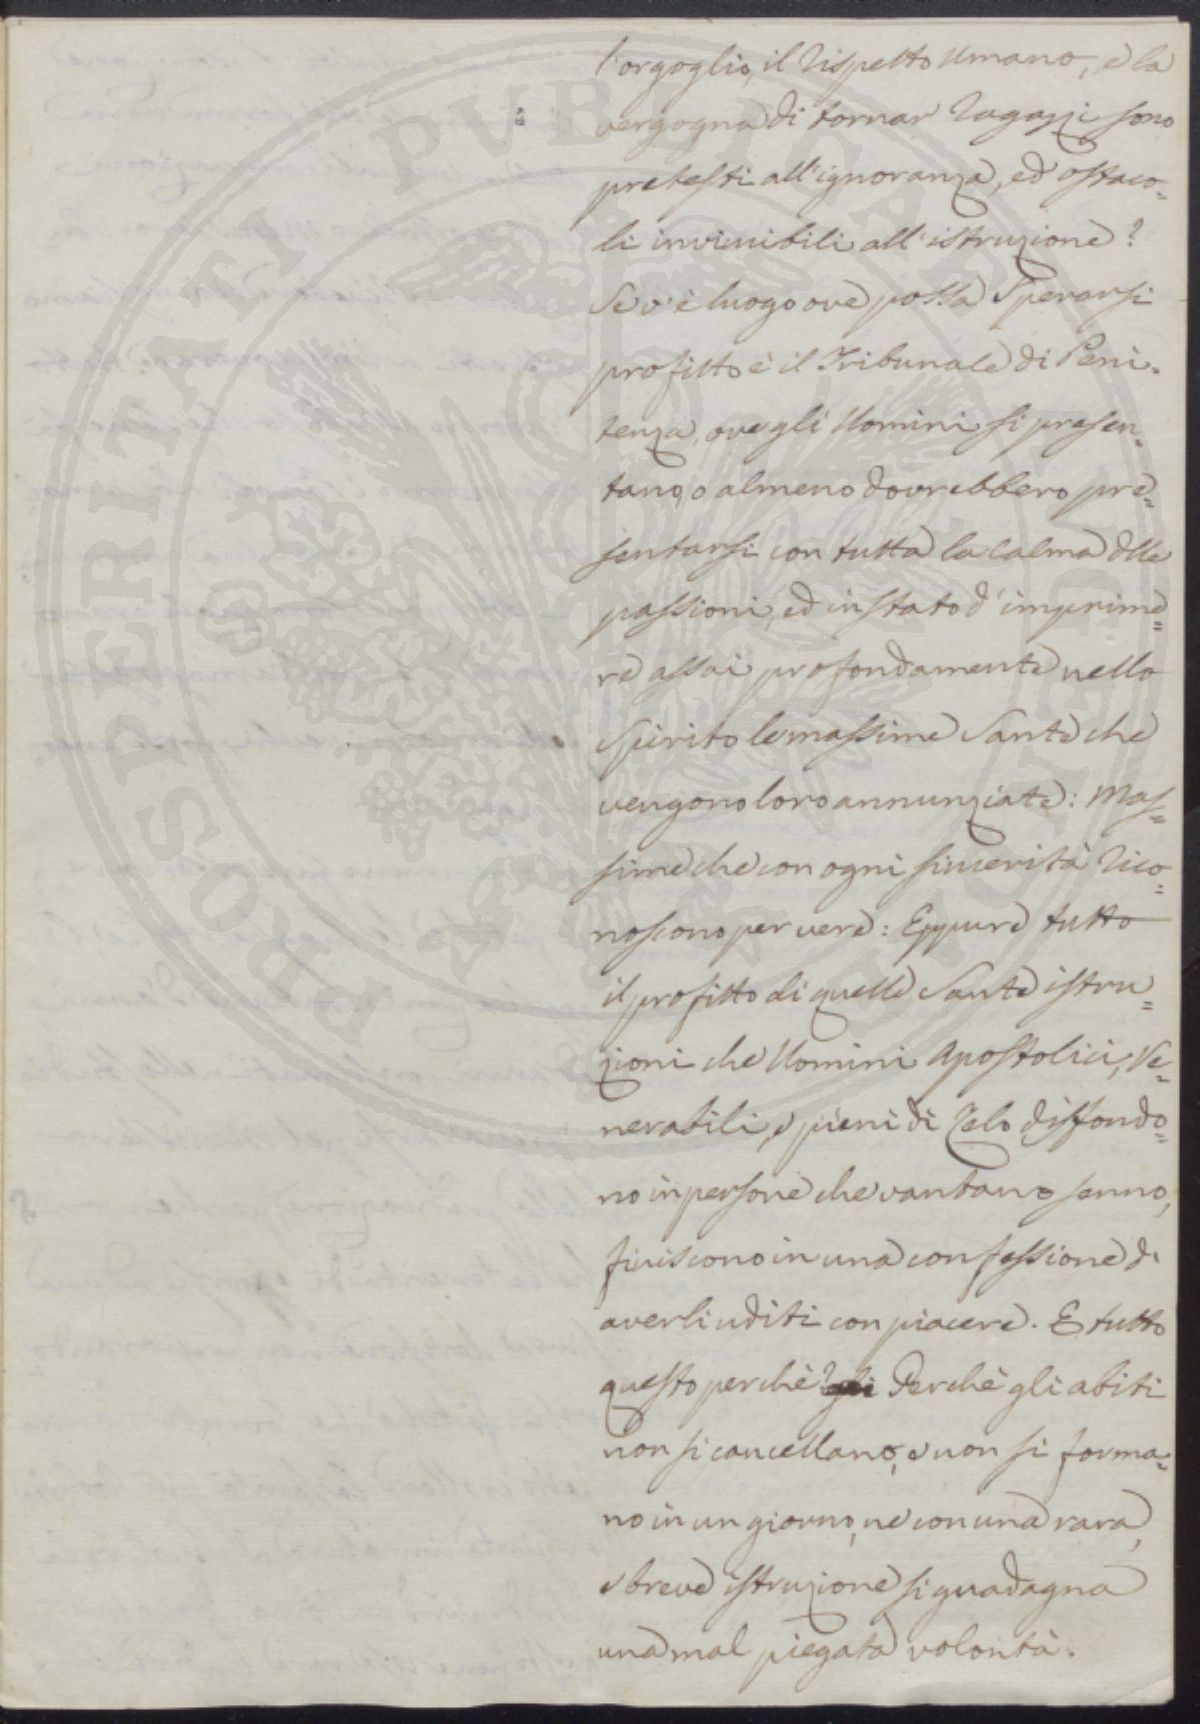 l'orgoglio, il rispetto Umano, e la
vergogna di tornar Ragazzi sono
pretesti all'ignoranza, ed ostaco=
li invincibili all'istruzione?
Se v'è luogo ove possa Sperarsi
profitto è il Tribunale di Peni=
tenza, ove gli Uomini si presen=
tano, o almeno dovrebbero pre=
sentarsi con tutta la Calma dlle
passioni, ed in stato d'imprime=
re assai profondamente nello
Spirito le massime Sante che
vengono loro annunziate: Mas=
sime che con ogni sincerità rico=
noscono per vere: Eppure tutto
il profitto di quelle Sante istru=
zioni che Uomini Apostolici, Ve=
nerabili, e pieni di Zelo diffondo=
no in persone che vantano senno,
finiscono in una confessione di
averli uditi con piacere. E tutto
questo perchè? Perchè gli abiti
non si cancellano, e non si forma=
no in un giorno, ne con una rara,
e breve istruzione si guadagna
una mal piegata volontà.
PROSPERITATI PVBLICAE